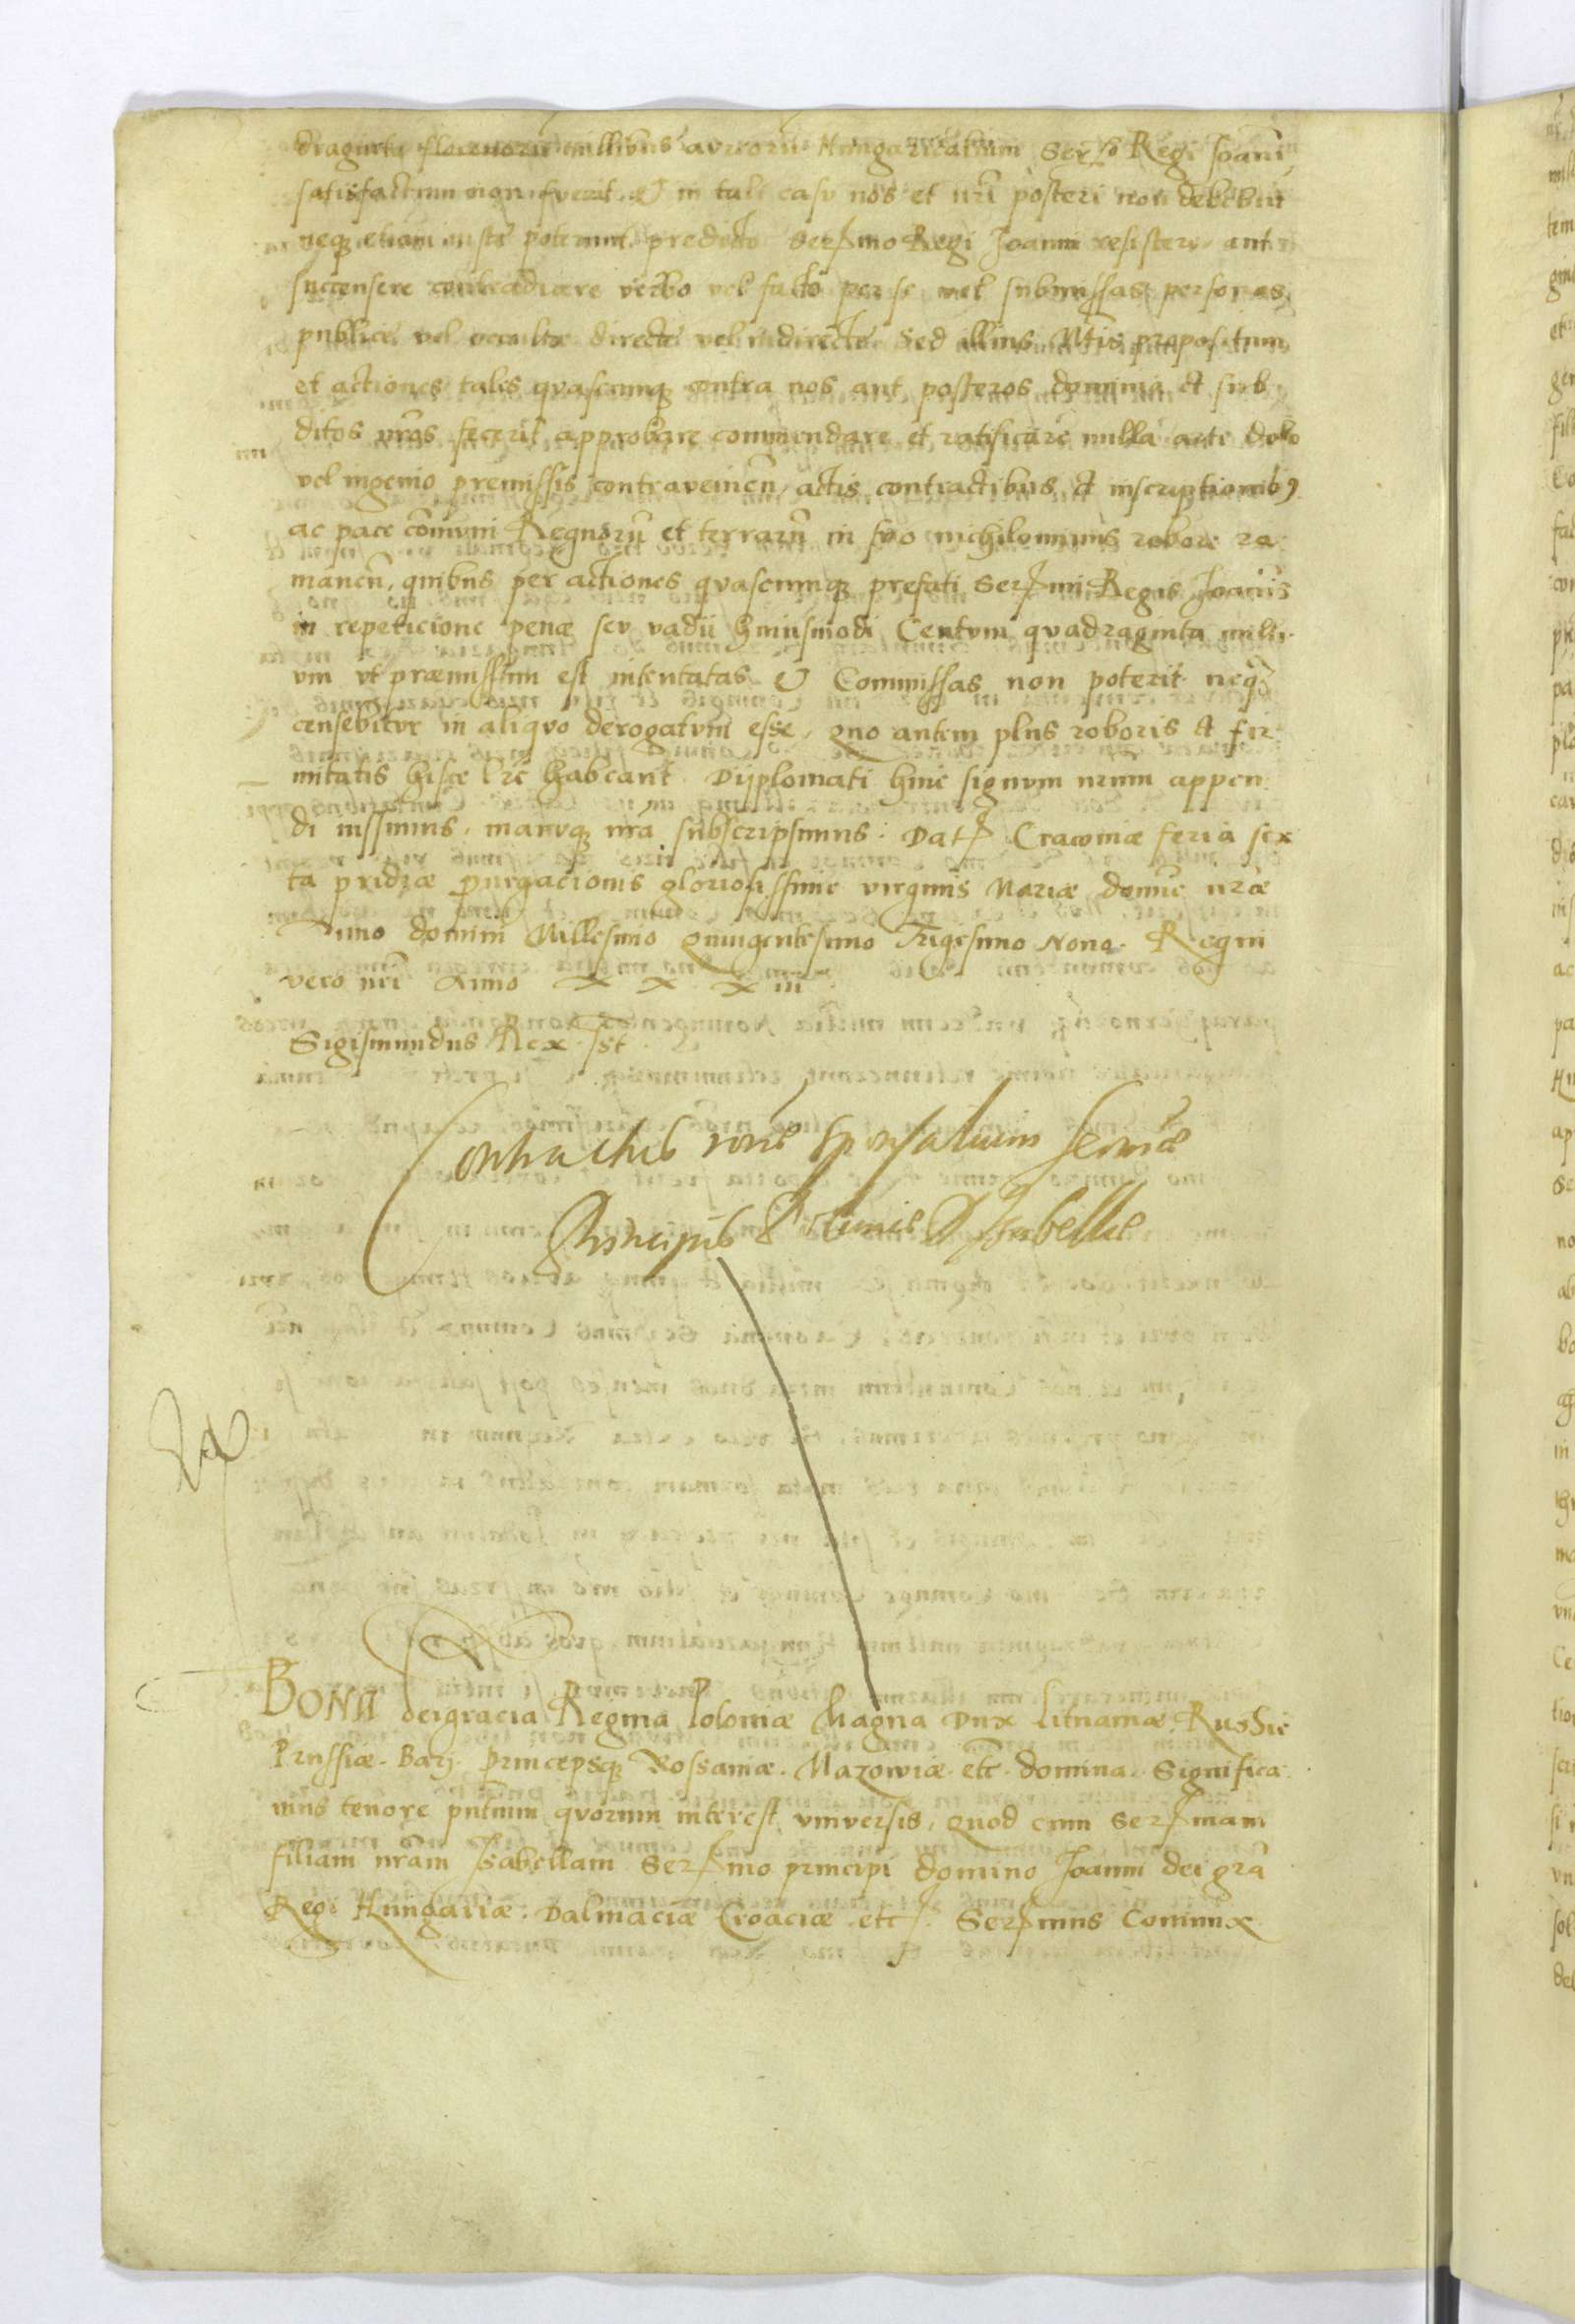 draginta florenorū millibus aureorū Hungaricalium Ser^mo Regi Joanī
satisfactum non fuerit. Et in tali casu nos et nrī posteri non debebūt
neq̃ etiam iuste poterunt predicto Serͫmo Regi Joanni resistere aut
succensere contradicere verbo vel facto per se vel submissas personas
publice vel occulte directe vel indirecte Sed illius Mtis propositum
et actiones tales quascunq̃ contra nos aut posteros dominia et sub
ditos nrōs fecerit approbare commendare et ratificare nulla arte dolo
vel ingenio premissis contraveineñ, actis contractibus et inscriptionib9
ac pace cōmuni Regnorū et terrarū in suo nichilominus robore re
maneñ, quibus per actiones quascunq̃ prefati Serͫmi Regis Joannis
in repeticione penæ seu vadii huiusmodi Centum quadraginta milli
um ut præmissum est intentatas Et Commissas non poterit neq̃
censebitur in aliquo derogatum esse, quo autem plus roboris et fir
mitatis hisce lr̄e habeant Diplomati huic signum nrum appen
di iussimus, manuq̃ nrā subscripsimus. Dat Cracoviæ feria sex
ta pridiæ purgacionis gloriosissime virginis Mariæ domine nræ
Anno domini Millesimo Quingentesimo Trigesimo Nono. Regni
vero nrī Anno X X X iii
Sigismundus Rex sst
Contractus sponsalium Serme
Principis Polonie D Isabelle
BONA deigracia Regina Poloniæ Magna Dux Lituaniæ, Russie
Prussiæ. Barj. princepsq̃ Rossaniæ. Mazowiæ etc domina. Significa
mus tenore pntium quorum interest universis, quod cum Serͫmam
filiam nrām Isabellam Serͫmo principi domino Joanni dei grā
Regi Hungariæ. Dalmaciæ Croaciæ etc. Serͫmus Coniunx